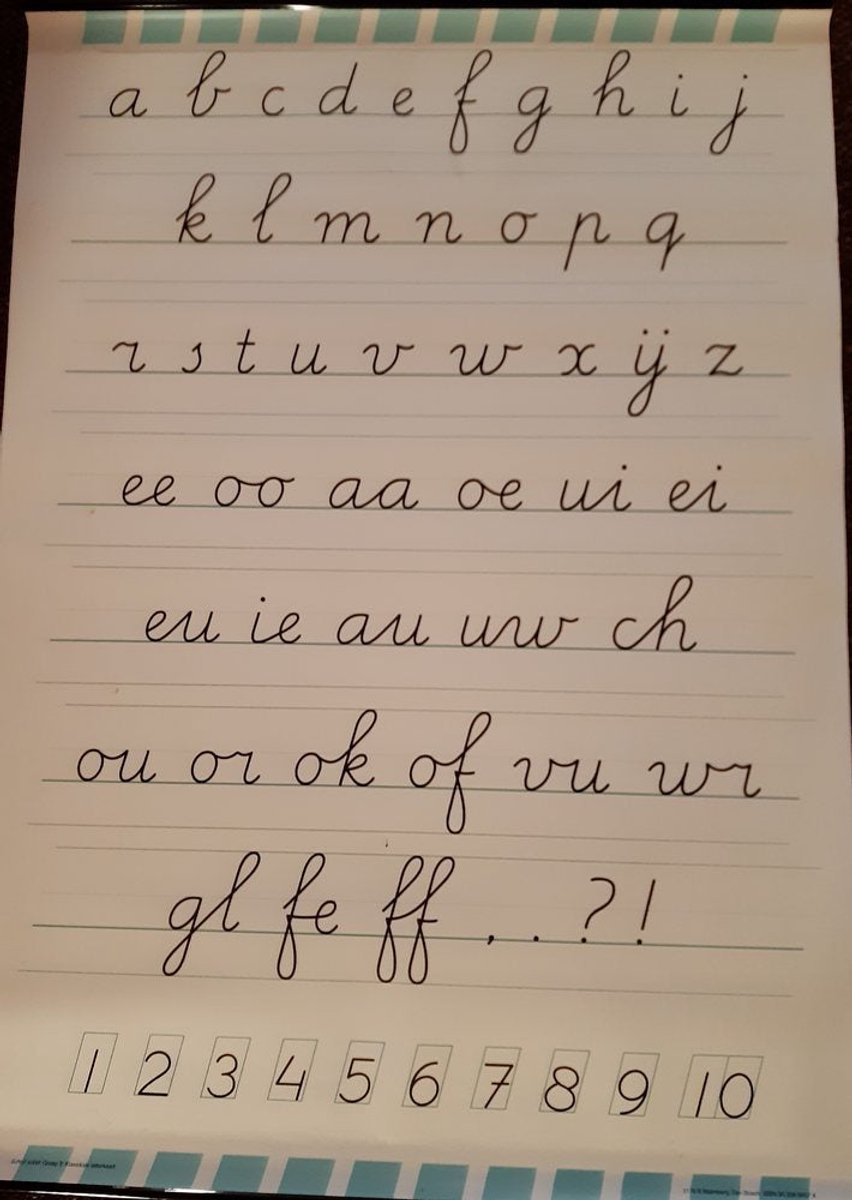 a b c d e f g h i j
k l m n o p q
r s t u v w x ij z
ee oo aa oe ui ei
eu ie au uw ch
ou or ok of vu wr
gl fe ff , . ? !
1 2 3 4 5 6 7 8 9 10